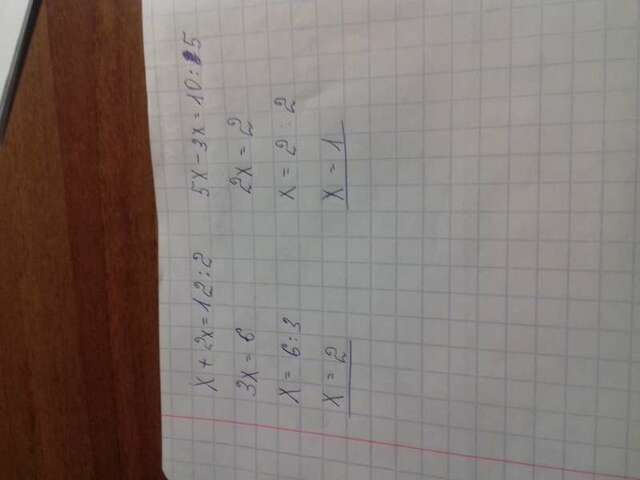 x + 2x = 12 : 2
3x = 6
x = 6 : 3
x = 2
5x - 3x = 10 : 5
2x = 2
x = 2 : 2
x = 1